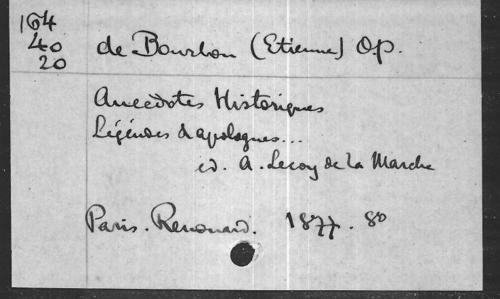 164
40
20
de Bourbon (Etienne) O.P.
Anecdotes Historiques
Légendes d'apologues...
ed. A. Lecoy de la Marche
Paris. Renouard. 1877. 8o